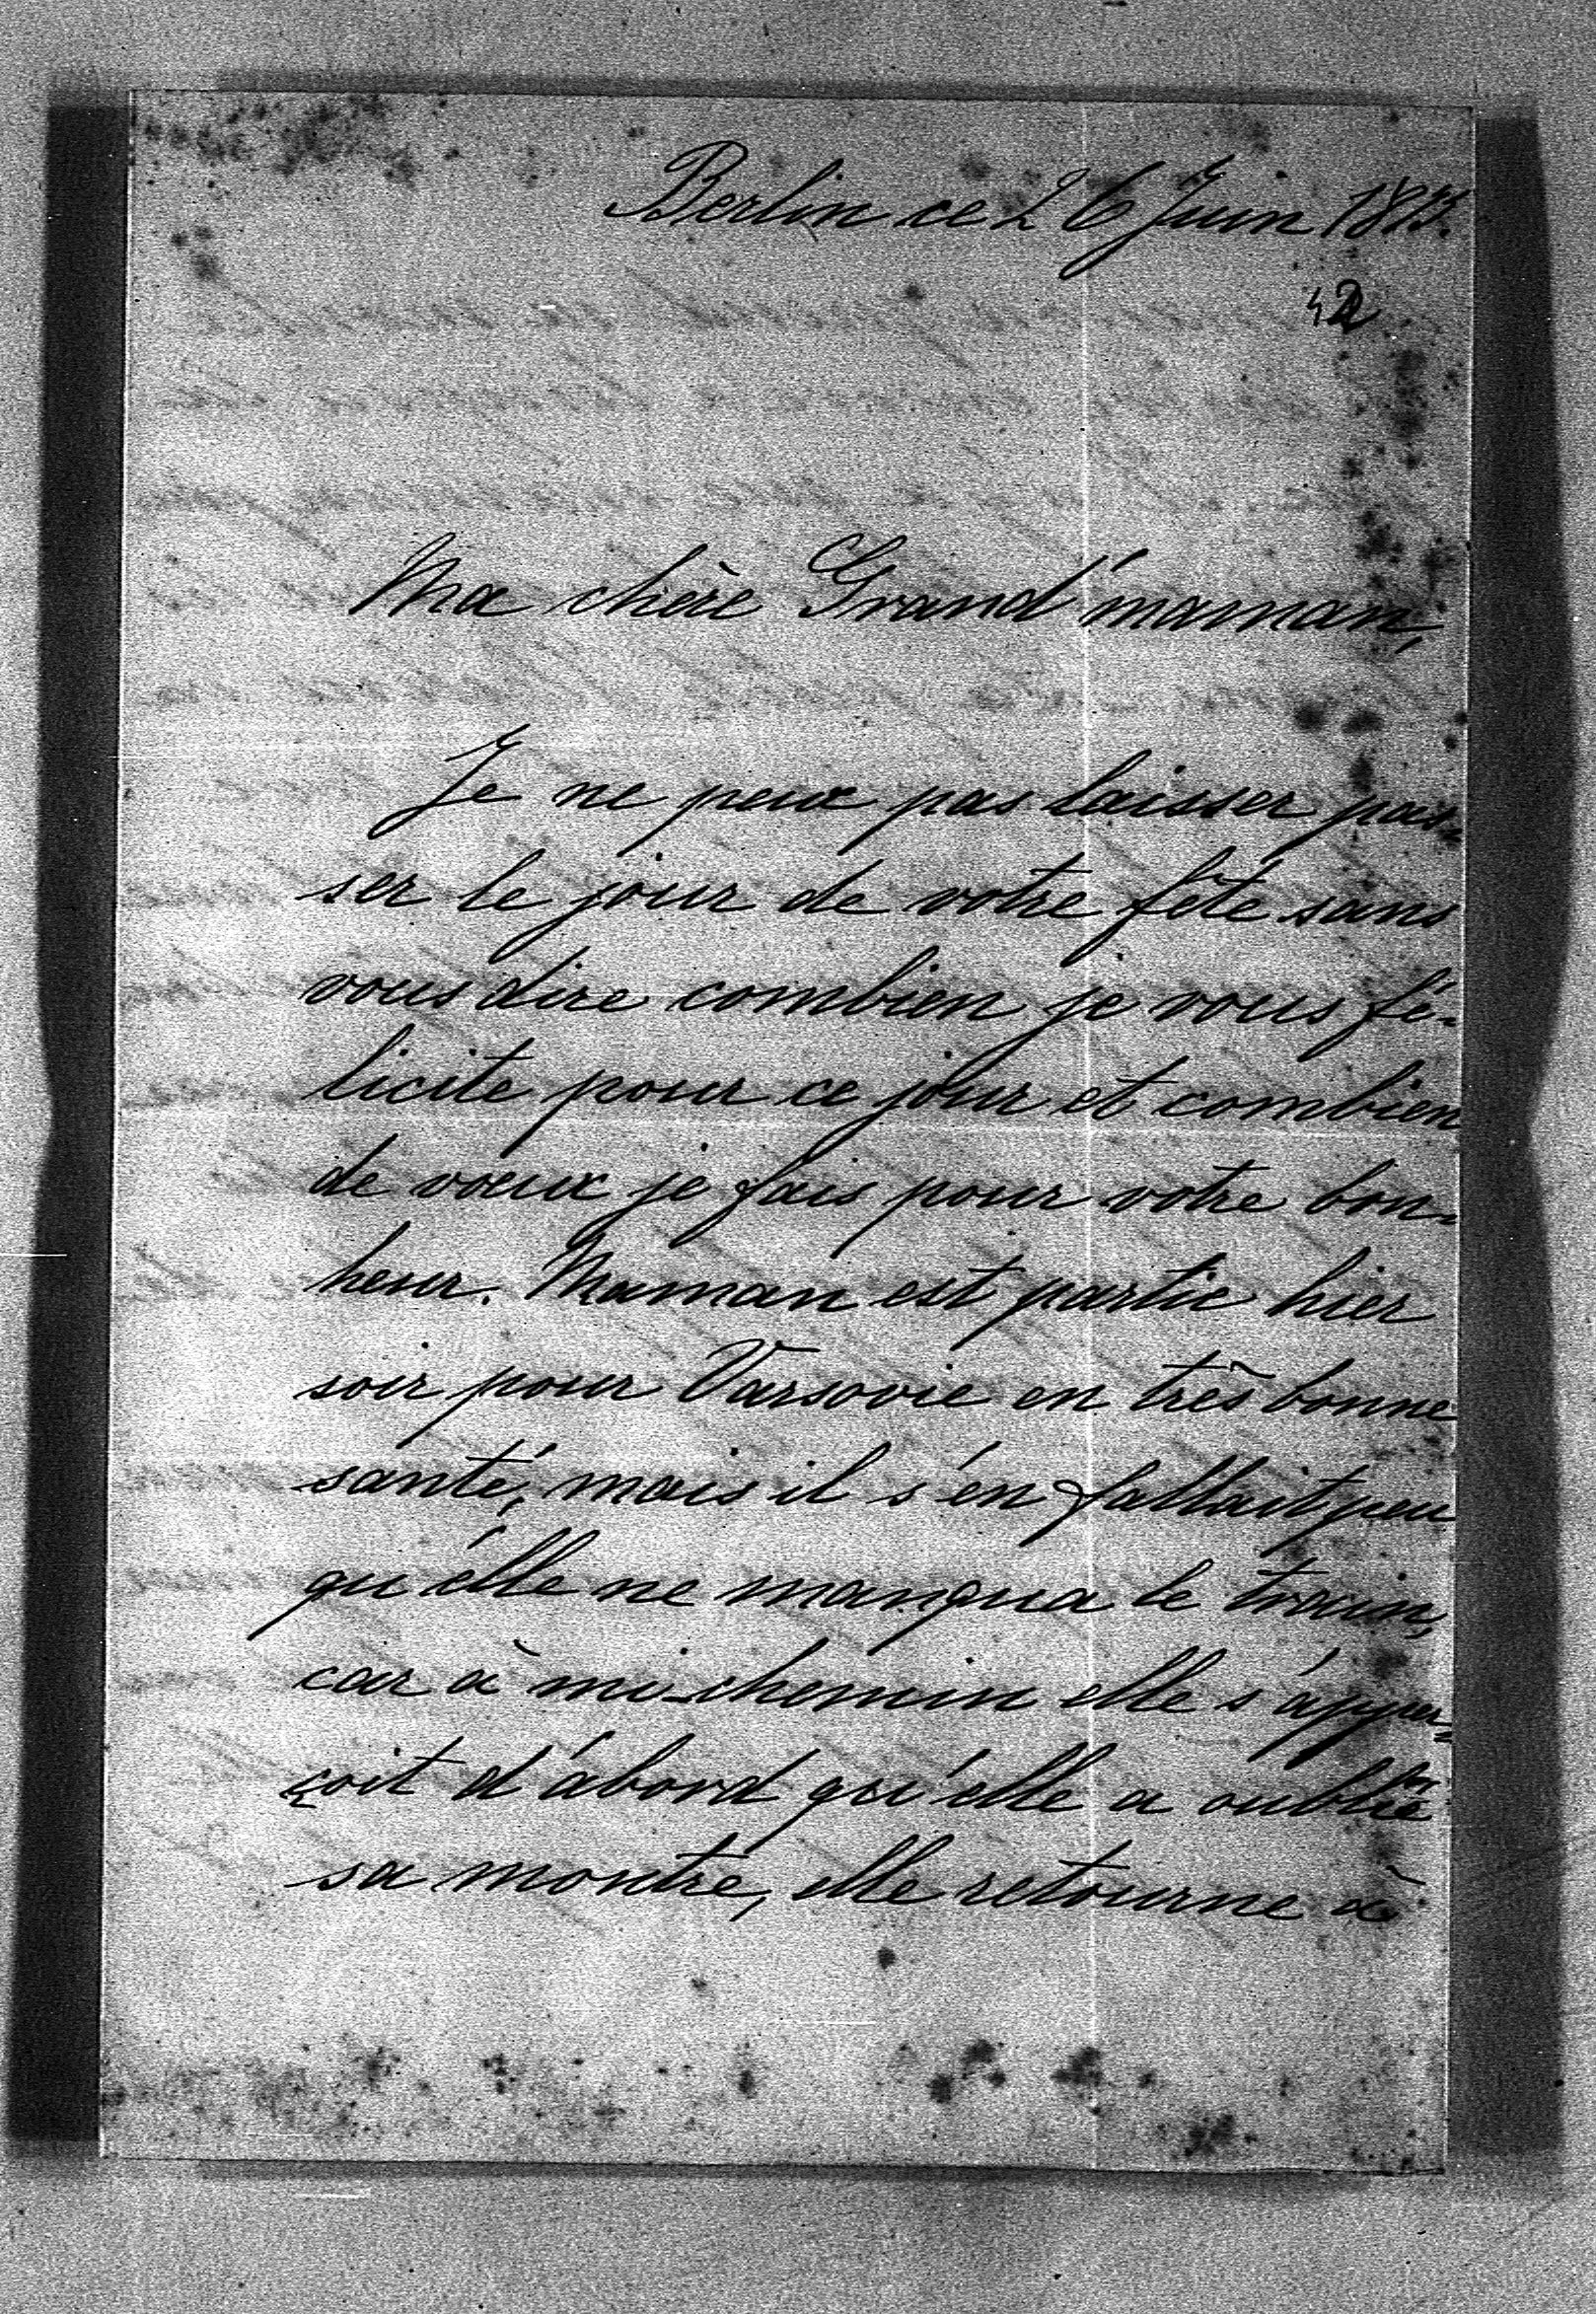 Berlin ce 26 Juin
42
Ma chère Grand'maman,
Je ne peux pas laisser pas-
ser le jour de votre fête sans
vous dire combien je vous fé-
licite pour ce jour et combien
de voeux je fais pour votre bon-
heur. Maman est partie hier
soir pour Varsovie en très bonne
santé, mais il s'en fallait peu
qu'elle ne manqua le train,
car à mi-chemin elle s'apper-
çoit d'abord qu'elle a oublié
sa montre, elle retourne à